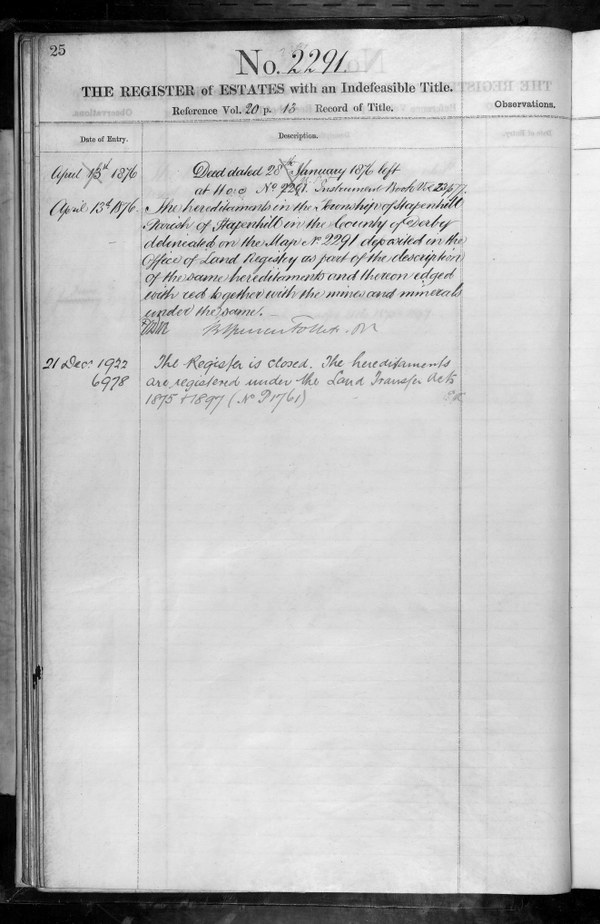 25
No. 2291.
THE REGISTER of ESTATES with an Indefeasible Title.
Reference Vol. 20 p. 13 Record of Title.
Observations.
Date of Entry.
Description.
April 13th 1876
Deed dated 28th January 1876 left
at 11 o'c No 2291. Instrument Book Vol
April 13th 1876.
The hereditaments in the Township of Stapenhill
Parish of Stapenhill in the County of Derby
delineated on the Map No 2291 deposited in the
Office of Land Registry as part of the description
of the same hereditaments and thereon edged
with red together with the mines and minerals
under the same.
21 Decr. 1922
6978
The Register is closed. The hereditaments
are registered under the Land Transfer Acts
1875 & 1897 (No P1761)